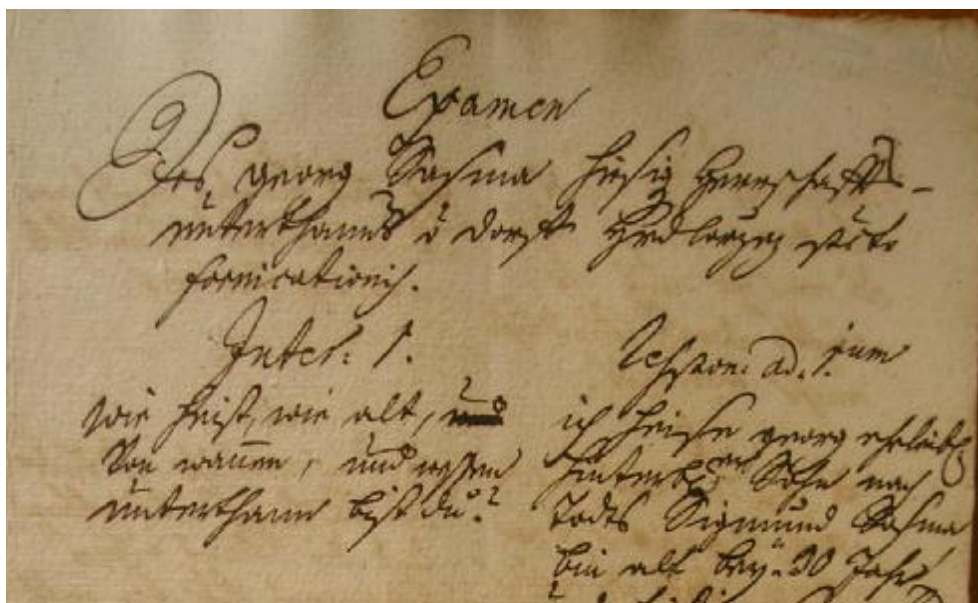 Examen
Des georg Sachma hiesig Herrschaffts-
unterthanns v dorff Hrdlorzez
fornicationis.
Inter: 1.
wie heist, wie alt, und
Von wannen, und wessen
unterthann bist du?
Respon: ad. 1. mum
ich heise georg ehrlich
hinterbl: Sohn nach
Todts Sigmund Sachma
bin alt bey. 30 Jahr